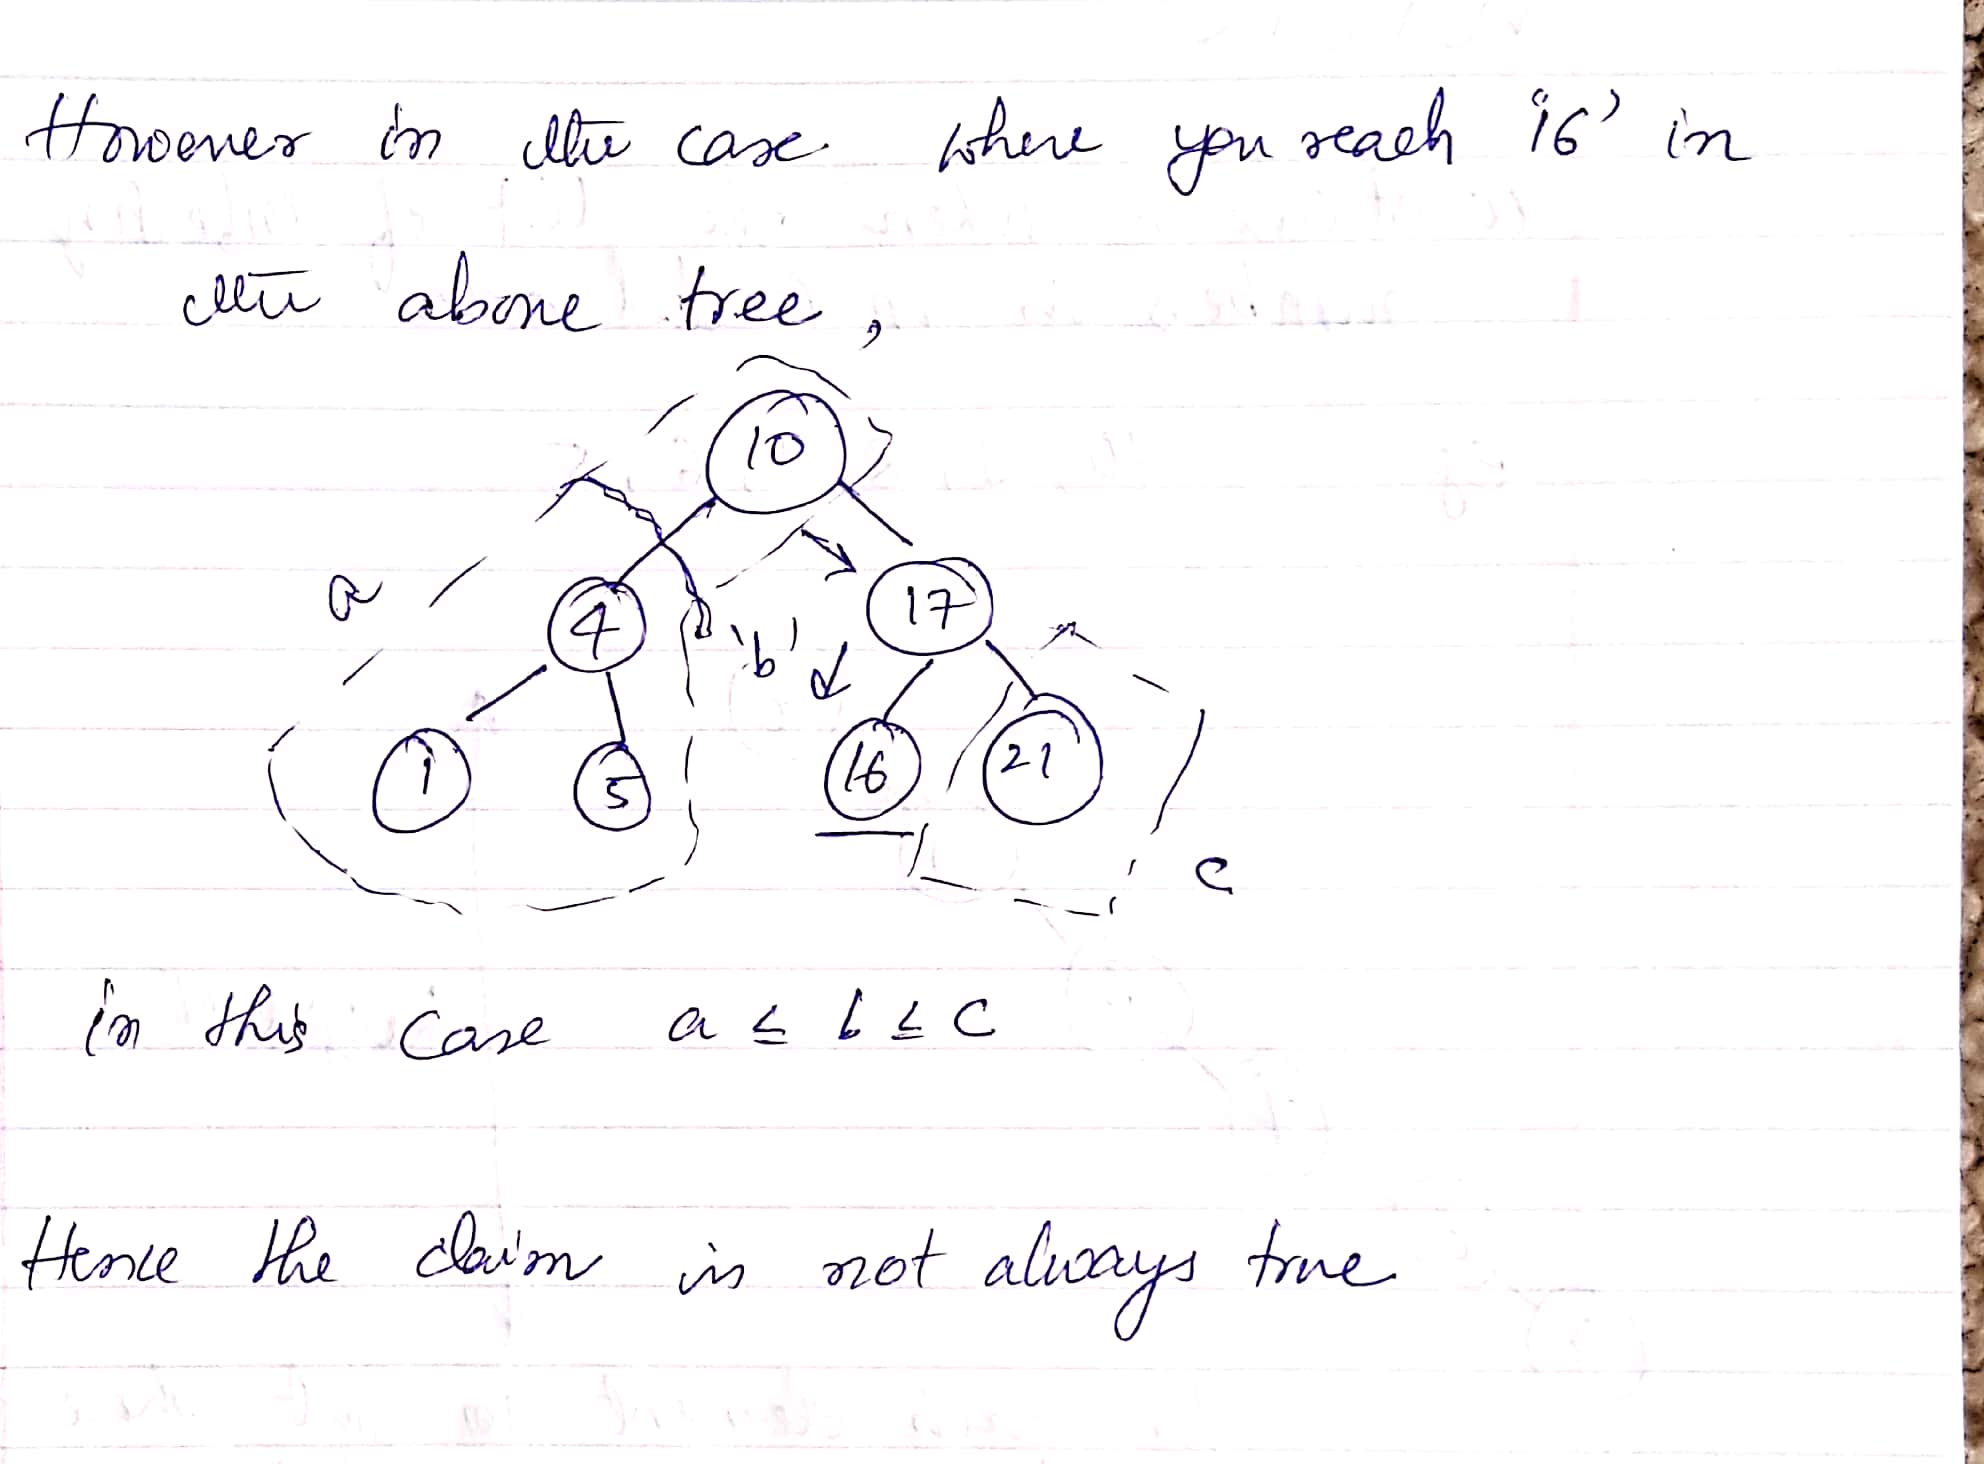 However in the case where you reach '16' in
the above tree,
10
a
4
'b'
17
1
5
16
21
c
in this case a ≤ b ≤ c
Hence the claim is not always true